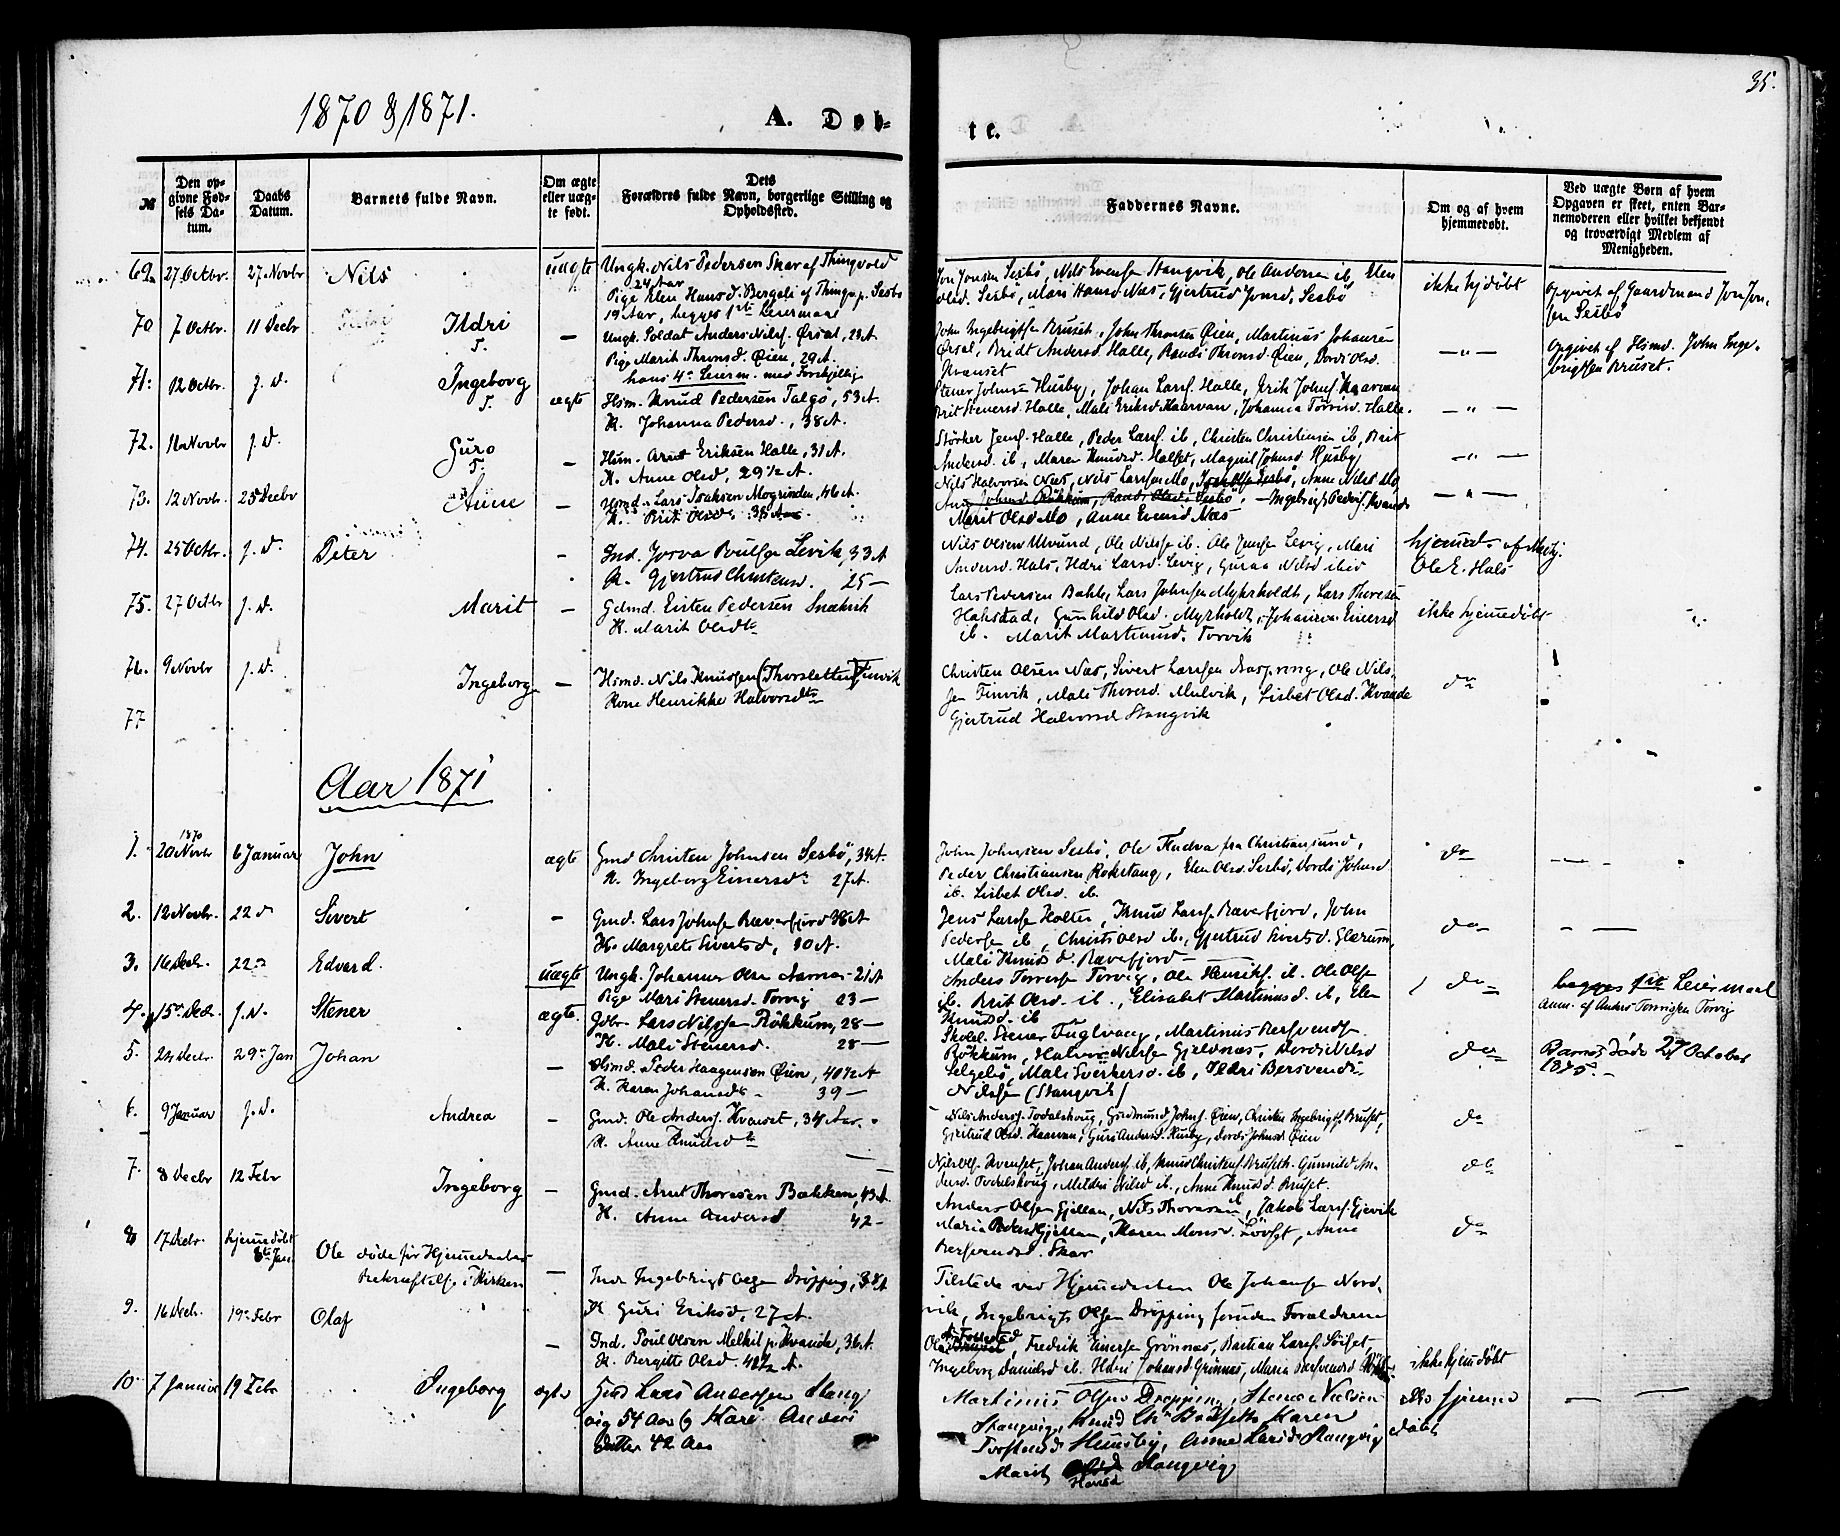 1870 & 1871.
A. Døb-
te.
35.
№
Den op-
givne Fød-
sels Da-
tum.
Daabs
Datum.
Barnets fulde Navn.
Om ægte
eller uæg-
te født.
Dets
Forældres fulde Navn, borgerlige Stilling og
Opholdssted.
Faddernes Navne.
Om og af hvem
hjemmedøbt.
Ved uægte Børn af hvem
Opgaven er skeet, enten Bar-
nemoderen eller hvilket bekjendt
og troværdigt Medlem af
Menigheden.
69. 27 Octbr. 27 Novbr Nils uægte Ungk. Nils Pedersen Skar af Thingvold
24 Aar
Pige Elen Hansd. Bergeli af Thingv. p. Sesbø
19 Aar, begges 1ste Leiermaal
Jon Jonsen Sesbø, Nils Evensen Stangvik, Ole Andersen ib, Elen
Olsd. Sesbø, Mari Hansd Næs, Gjertrud Jonsd. Sesbø
ikke hjdøbt
Opgivet af Gaardmand Jon Jon-
sen Sesbø
70 7 Octbr. 11 Decbr Ildri
T.
— Ungk. Soldat Anders Nilss. Ørsal, 23 A.
Pige Marit Thronsd. Øien, 29 A.
hans 4de Leierm. med Forskjellig
John Ingebrigtsen Bruset, John Thronsen Øien, Martinus Johansen
Ørsal, Bridt Andersd. Halle, Randi Thronsd. Øien, Dordi Olsd.
Kvanset
— " —
Opgivet af Hsmd. John Inge-
brigtsen Bruset.
71. 12 Octbr. J. D. Ingeborg
T.
ægte Hsm. Knud Pedersen Talgø, 53 A.
K. Johanna Pedersd., 38 A.
Stener Johnsen Husby, Johan Larss. Halle, Erik Johns. Kaarvan
Brit Stenersd. Halle, Mali Eriksd Kaarvan, Johanna Torrisd. Halle.
— " —
72. 11 Novbr J. D. Guro
T.
— Hsm. Arnt Eriksen Halle, 31 A.
K. Anne Olsd, 29 ½ A.
Størker Jens. Halle, Peder Larss. ib, Christen Christensen ib, Brit
Andersd. ib, Maren Knudsd. Halset, Magnil Johnsd Husby
— " —
73. 12 Novbr. 25 Decbr Anne
— Hsmd. Lars Isaksen Mogrinden, 46 A.
K. Brit Olsd., 35 Aar.
Nils Halvorsen Næs, Nils Larssen Mo, Sesbø, Anne Nilsd Mo
Johnsd Røkkum, Randi Olsd. Sesbø, — Ingebrigt Peders. Kvande
Marit Olsd Mo, Anne Evensd Næs
— " —
74. 25 Octbr. J. D. Peter
— Ind. Josva Poulsen Levik, 33 A
K. Gjertrud Christensd. 25 —
Nils Olsen Ulvund, Ole Nilsen ib. Ole Jensen Levig, Mari
Andersd. Hals, Ildri Larsd. Levig, Guraa Nilsd ib
hjemed. af
Ole E. Hals
75. 27 Octbr J. D. Marit
— Gdmd. Eisten Pedersen Snekvik
K. Marit Olsdt.
Lars Iversen Bakke, Lars Johnsen Myrholdt, Lars Thoresen
Halsstad, Gunhild Olsd. Myrholdt, Johanna Einersd
ib. Marit Martinusd. Torvik
ikke hjemedøbt
76. 9 Novbr J. D. Ingeborg
— Hsmd. Nils Knudsen (Thorsletten) Finvik
Kone Henrikke Halvorsdtr
Christen Olsen Næs, Sivert Larssen Aaspring, Ole Nils-
sen Finvik, Mali Thoresd. Mulvik, Lisbet Olsd. Kvande
Gjertrud Halvorsd Stangvik
do
77
Aar 1871
1. 1870
20 Novbr 6 Januar John
ægte Gmd Christen Johnsen Sesbø, 34 A.
K. Ingeborg Einersdr 27 A.
John Johnsen Sesbø, Ole Fladva fra Christiansund,
Peder Christiansen Rokstang, Elen Olsd. Sesbø, Dordi Johnsd
ib. Lisbet Olsd. ib.
do
2. 12 Novbr. 22 d Sivert
— Gmd. Lars Johnsen Ræverfjord 38 A
K. Margrete Sivertsd, 30 A.
Jens Larssen Holten, Knud Larss. Ræverfjord, John
Pedersen ib, Christi Olsd ib., Gjertrud Sivertsd. Glærum
Mali Knudsd. Rævefjord —
do
3. 16 Decbr. 22 d Edvard.
uægte Ungk. Johannes Olsen Aarnes 21 A
Pige Mari Stenersd. Torvig 23 —
Anders Torresen Torvig, Ole Henriks. ib. Ole Olsen
ib. Brit Olsd. ib., Elisabet Martinusd. ib, Elen
Knudsd. ib
do
begges 1ste Leiermaal
Anm. af Anders Torresen Torvig
4. 15 Dec. J. D. Stener
ægte. Gdbr. Lars Nilssen Røkkum, 28 —
K. Mali Stenersd. 28 —
Skolel. Stener Fuglvaag, Martinus Bersvends.
Røkkum, Halvor Nilssen Gjeldnæs, Dordi Nilsd
5. 24 Decbr. 29 Jan Johan
— Hsmd. Peder Haagensen Øien, 40 ½ A
K. Karen Johansdr. 39 —
Selgebø, Mali Sverkersd. ib, Ildri Bersvends.
Nilsen (Stangvik)
do
Barnet døde 27 October
1875.
6. 9 Januar J. D. Andrea
— Gmd. Ole Anders. Kvanset, 34 Aar.
K. Anne Knudsdtr
Nils Anders. Todalshoug, Gudmund Johns. Øien, Christen Ingebrigts. Bruset,
Gjertrud Olsd. Kaarvan, Guri Andersd. Husby, Dordi Johnsd. Øien
do
7. 8 Decbr 12 Febr Ingeborg
— Gmd. Arnt Thoresen Bakken, 43 A.
K. Anne Andersd 42 —
Nils Ols. Kvanset, Johan Anders. ib, Knud Christens. Bruseth. Gunnild An-
dersd. Todalshoug, Meldri Nilsd ib., Anne Knudsd. Bruset.
do
8 17 Decbr. hjemedøbt
8de Jan. Ole døde før Hjemedaabens
Bekræftelse i Kirken
— Ind. Ingebrigt Olsen Drøpping, 38 A
K. Guri Eriksd, 27 A.
Anders Olsen Gjellan, Nils Thoresen ib, Jakob Larss. Gjervik
Maria Pedersd Gjellan, Karen Monsd. Løvset, Anne
Bersvendsd. Skar
do
Tilstede ved Hjemedaaben Ole Johansen Nord-
vik, Ingebrigt Olsen Drøpping foruden Forældrene
9. 16 Decbr. 19 Febr Olaf
— Ind. Poul Olsen Melhil p. Kvande, 36 A
K. Bergitte Olsd. 40 ½ A.
Ole Fredrik Einersen Grønnæs, Bastian Larss. Søiset,
Ingeborg Danielsd ib. Ildri Johansd Grønnæs, Maria Bersvendsd
ikke hjemdøbt
10. 7 Januar 19 Febr Ingeborg
ægte Gmd Lars Andersen Stang
vig 54 Aar & Kari Anders
datter 42 Aar
Martinus Olsen Drøpping, Stener Nielsen
Stangvig, Knud Chr. Bruseth, Karen
Torstensd. Hunsby, Anne Larsd. Stangvig
Marit Stangvig
Hansd
ikke hjemme
døbt